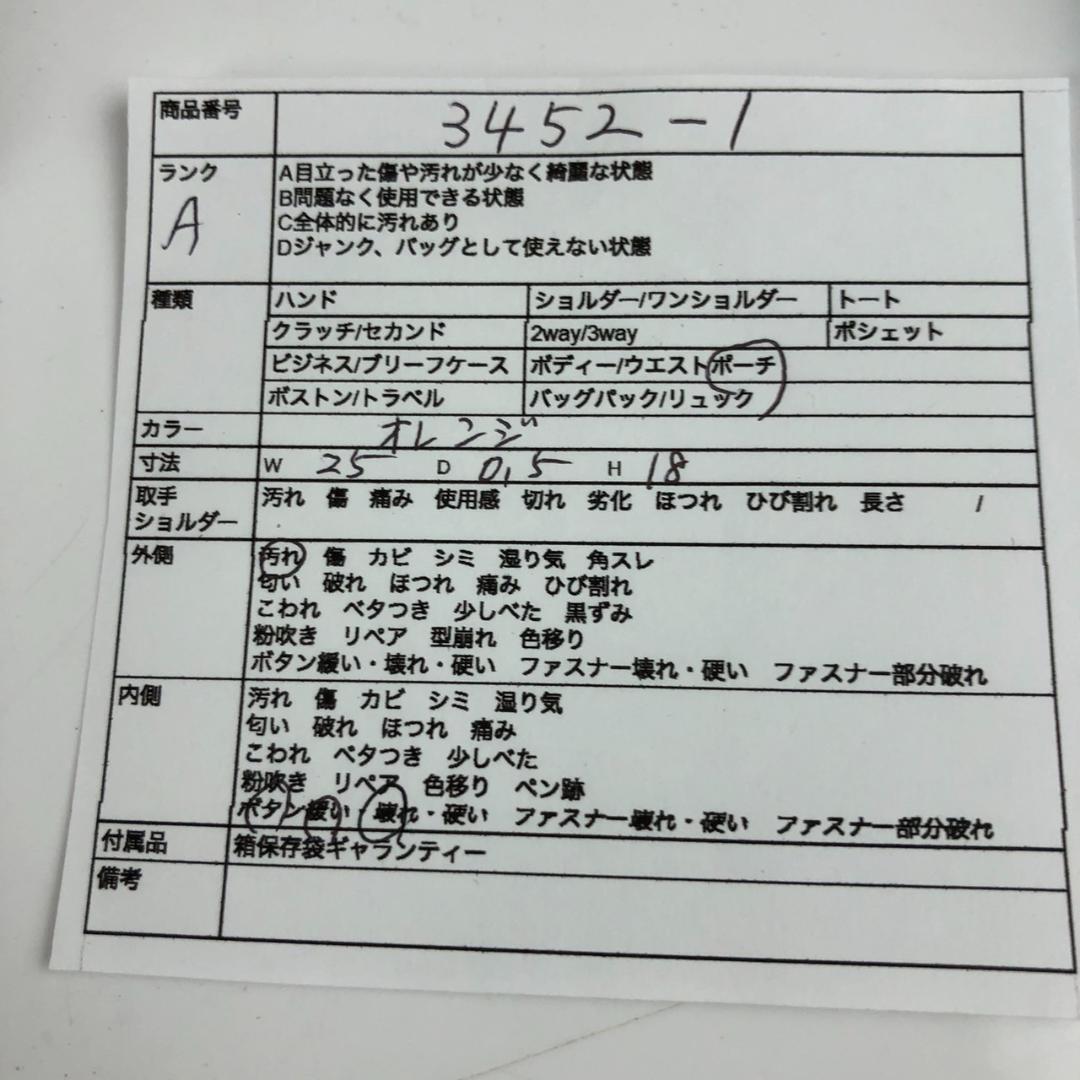 商品番号 3452-1
ランク A
A目立った傷や汚れが少なく綺麗な状態
B問題なく使用できる状態
C全体的に汚れあり
Dジャンク、バッグとして使えない状態
種類 ハンド ショルダー/ワンショルダー トート
クラッチ/セカンド 2way/3way ポシェット
ビジネス/ブリーフケース ボディー/ウエストポーチ
ボストン/トラベル バッグパック/リュック
カラー オレンジ
寸法 W 25 D 0,5 H 18
取手 汚れ 傷 痛み 使用感 切れ 劣化 ほつれ ひび割れ 長さ /
ショルダー
外側 汚れ 傷 カビ シミ 湿り気 角スレ
匂い 破れ ほつれ 痛み ひび割れ
こわれ ベタつき 少しべた 黒ずみ
粉吹き リペア 型崩れ 色移り
ボタン緩い・壊れ・硬い ファスナー壊れ・硬い ファスナー部分破れ
内側 汚れ 傷 カビ シミ 湿り気
匂い 破れ ほつれ 痛み
こわれ ベタつき 少しべた
粉吹き リペア 色移り ペン跡
ボタン緩い・壊れ・硬い ファスナー壊れ・硬い ファスナー部分破れ
付属品 箱保存袋ギャランティー
備考